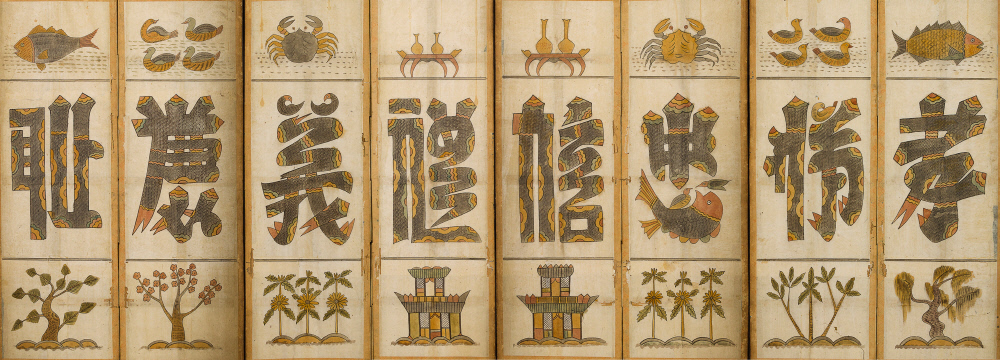 孝悌忠信禮義廉耻